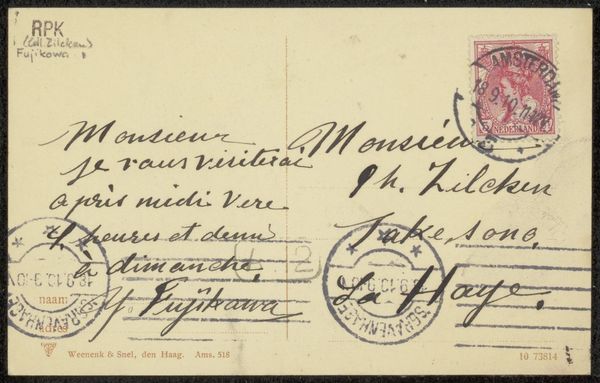 RPK
(Coll. Zilcken)
Fujikowa
AMSTERDAM
18.9.10
NEDERLAND
Monsieur
je vous visiterai
après midi vere
heures et demi
à dimanche
Y. Fujikawa
Monsieur
Ph. Zilcken
La Haye.
'S-GRAVENHAGE
'S-GRAVENHAGE
naam:
adres
Weenenk & Snel, den Haag. Ams. 518
10 73814